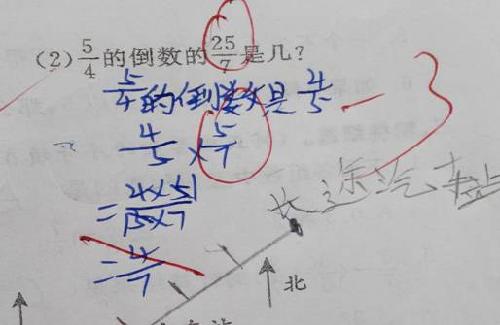 (2) 5/4 的倒数的 25/7 是几?
5/4 的倒数是 4/5 -3
4/5 × 5/7
= 4×5/5×7
= 4/7
长途汽车站
北